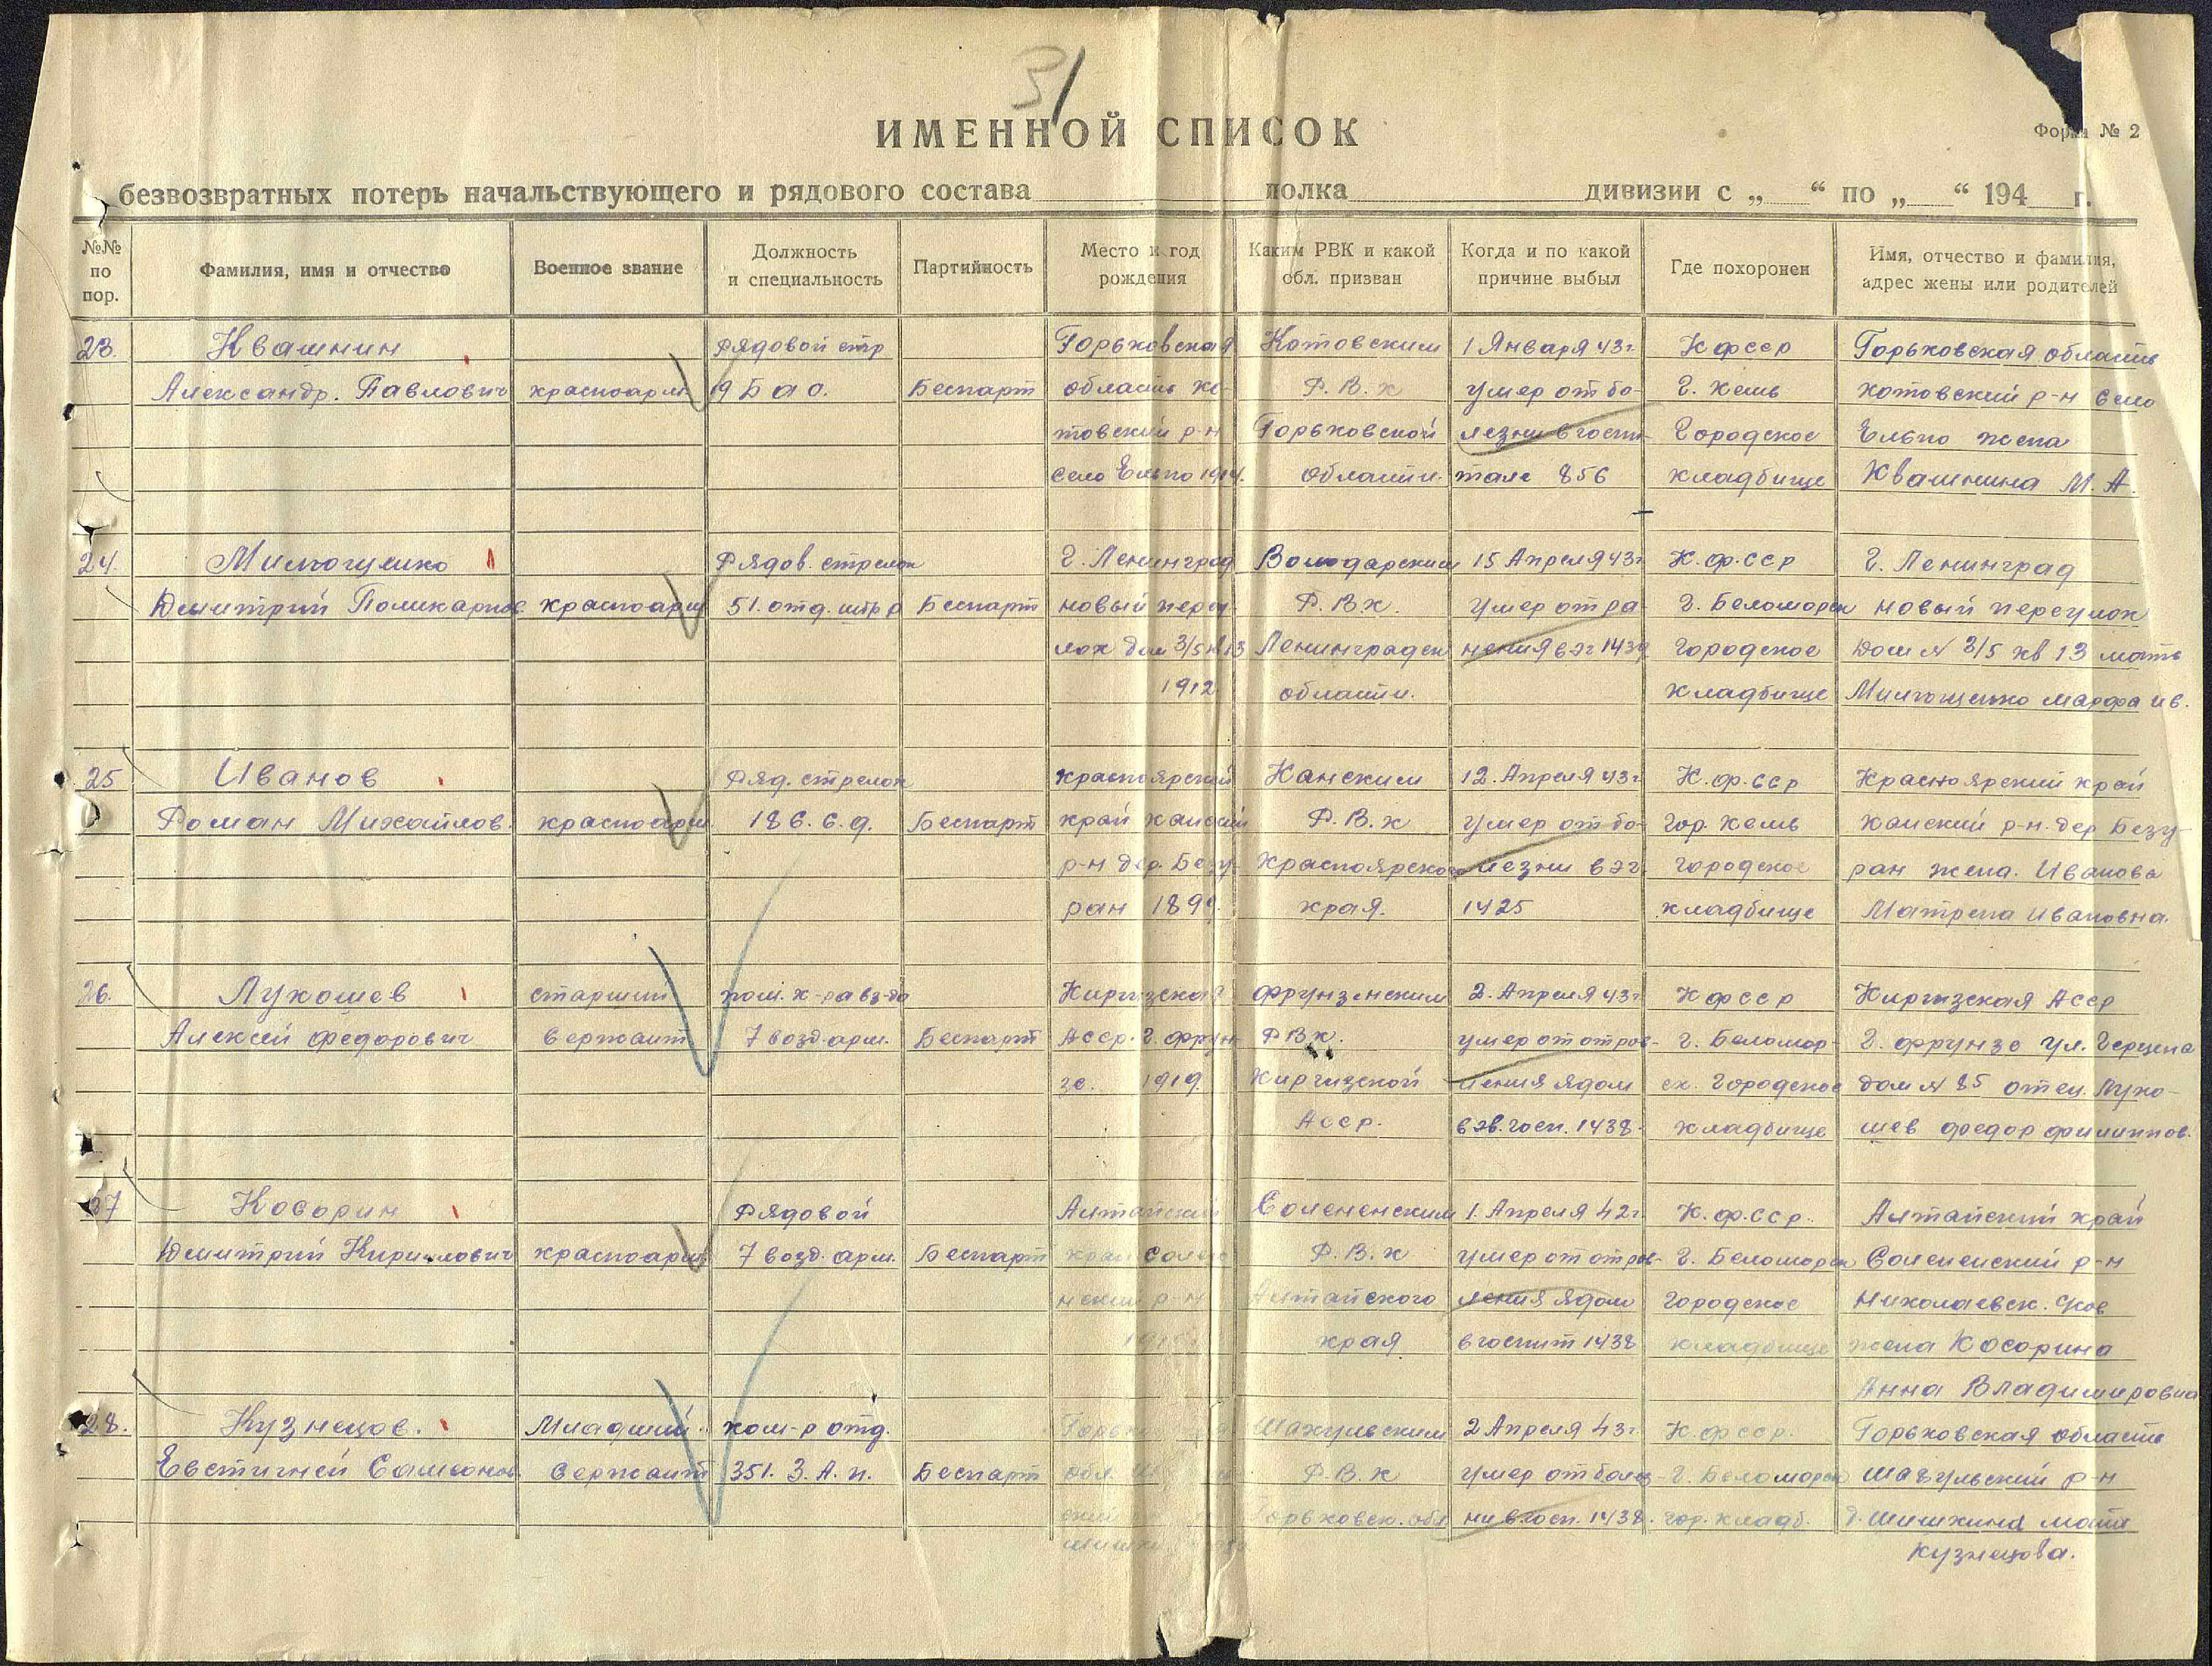 31
ИМЕННОЙ СПИСОК
Форма № 2
безвозвратных потерь начальствующего и рядового состава полка дивизии с „ “ по „ “ 194 г.
№№ по пор.
Фамилия, имя и отчество
Военное звание
Должность и специальность
Партийность
Место и год рождения
Каким РВК и какой обл. призван
Когда и по какой причине выбыл
Где похоронен
Имя, отчество и фамилия, адрес жены или родителей
23. Квашнин Рядовой стр Горьковская Котовским 1 Января 43 г. Кфсср Горьковская область
Александр. Павлович красноарм. 19 Б а о. Беспарт область Ко- Р.В.К умер от бо- г. Кемь Котовский р-н село
товский р-н Горьковской лезни в госпи- Городское Ельпо жена
село Ельпо 1914. области. тале 856 кладбище Квашнина М. А.
24. Рядов. стрелок г. Ленинград Володарским 15 Апреля 43 г К.ф.ССР г. Ленинград
Дмитрий Поликарпов. красноарм 51. отд. штр р Беспарт новый переу- Р.В.К. умер от ра- г. Беломорск новый переулок
лок дом 3/5 кв 13 Ленинградск нения в эг 1439 городское дом № 3/5 кв 13 мать
1912 области. кладбище Марфа ив.
25 Иванов Ряд. стрелок красноярский Канским 12. Апреля 43 г К.ф.ССР Красноярский край
Роман Михайлов. красноарм 186. с. д. Беспарт край канский Р.В.К умер от бо- гор. Кемь канский р-н. дер Безу-
р-н дер. Безу- Красноярского лезни в эг. городское ран жена. Иванова
ран 189 края. 1425 кладбище Матрена Ивановна.
26. Лукошев старший пом. к-ра вз-да Киргизская фрунзенским 2. Апреля 43 г Кфсср Киргизская Асср
Алексей Федорович сержант 7 возд. арм. Беспарт Асср. г. фрун- РВК. умер от отрав- г. Беломор- г. фрунзе ул. Герцена
зе. 1919. Киргизской ления ядом ск. городское дом № 85 отец. Луко-
Асср. в эв. госп. 1438. кладбище шев федор филиппов.
27 Косорин Рядовой Алтайский Солененским 1. Апреля 42 г К.ф.ССР. Алтайский край
Дмитрий Кириллович красноарм. 7 возд. арм. Беспарт край солене Р.В.К умер от отрав- г. Беломорск Солененский р-н
нский р-н Алтайского ления ядом городское николаевск.
края. в госпит 1438 кладбище жена Косорина
Анна Владимировна
28. Кузнецов. Младший ком-р отд. Шахунским 2 Апреля 43 г К.фсср. Горьковская область
Евстигней Самсонов. сержант 351. З. А. п. Беспарт обл. Р.В.К умер от болез- г. Беломорск р-н
ский Горьковск. обл ни в госп. 1438. гор. кладб. д. Шишкина мать
Кузнецова.